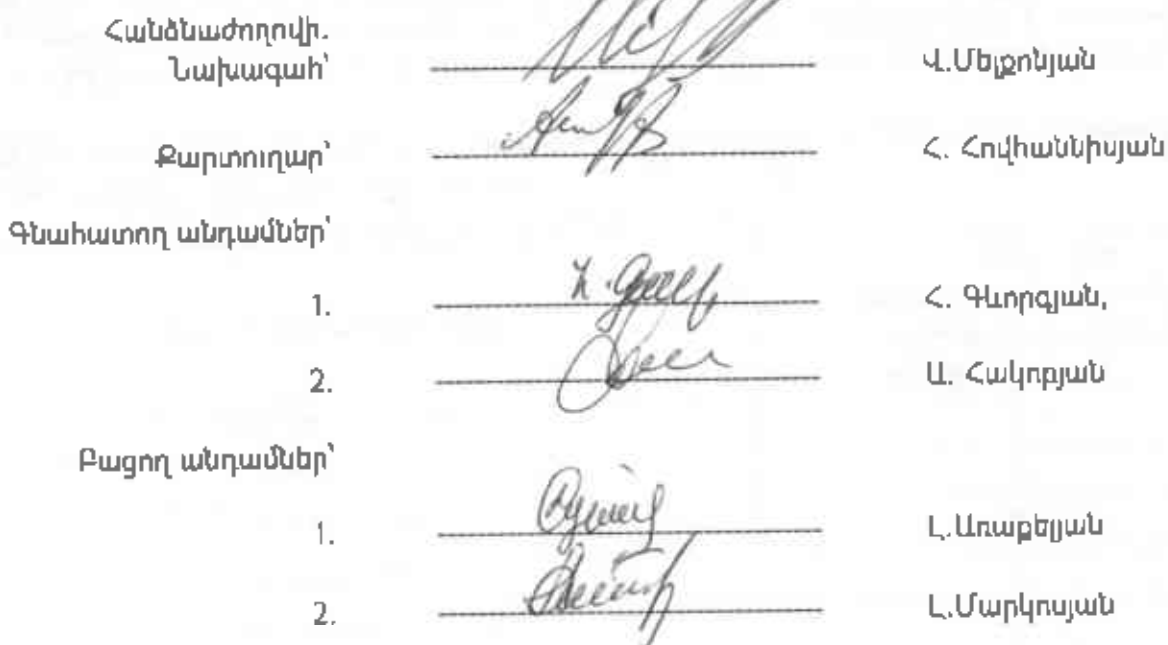 Հանձնաժողովի.
Նախագահ՝ Վ.Մելքոնյան
Քարտուղար՝ Հ. Հովհաննիսյան
Գնահատող անդամներ՝
1. Հ. Գևորգյան,
2. Ա. Հակոբյան
Բացող անդամներ՝
1. Լ.Առաքելյան
2. Լ.Մարկոսյան